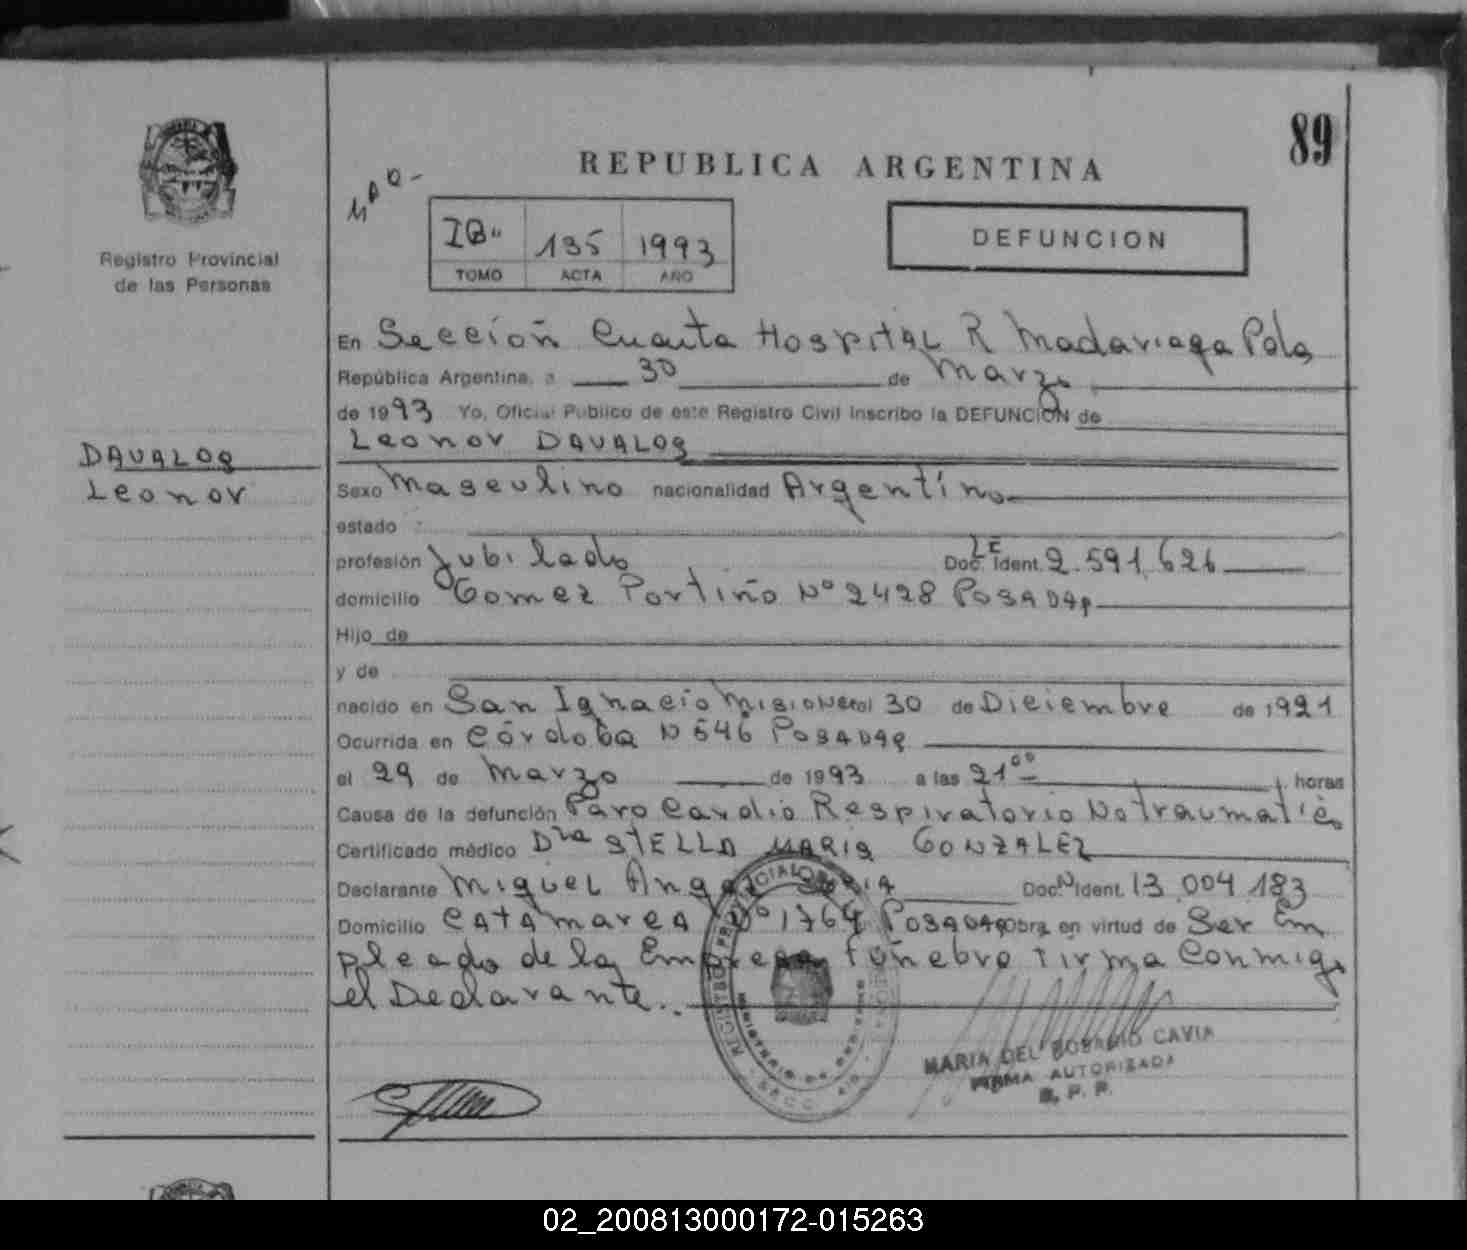 89
REPUBLICA ARGENTINA
IBis 135 1993
TOMO ACTA AÑO
DEFUNCION
Registro Provincial
de las Personas
DAVALOS
Leonor
En Sección Cuarta Hospital R Madariaga Pdas
República Argentina, a 30 de Marzo
de 1993 Yo, Oficial Público de este Registro Civil inscribo la DEFUNCION de
Leonor DAVALOS
Sexo Masculino nacionalidad Argentino
estado
profesión Jubilado Doc. Ident. LE 2.591.626
domicilio Gomez Portiño Nº 2428 Posadas
Hijo de
y de
nacido en San Ignacio Misiones el 30 de Diciembre de 1921
Ocurrida en Córdoba N 646 Posadas
el 29 de Marzo de 1993 a las 21 00 horas
Causa de la defunción Paro Cardio Respiratorio No traumatico
Certificado médico Dra STELLA MARIA GONZALEZ
Declarante Miguel Angel Doc. N Ident. 13.004.183
Domicilio CATAMARCA Nº 1764 Posadas obra en virtud de Ser Em
pleado de la Empresa Funebre Firma Conmigo
el Declarante.
MARIA DEL ROSARIO CAVIA
FIRMA AUTORIZADA
R. P. P.
02_200813000172-015263